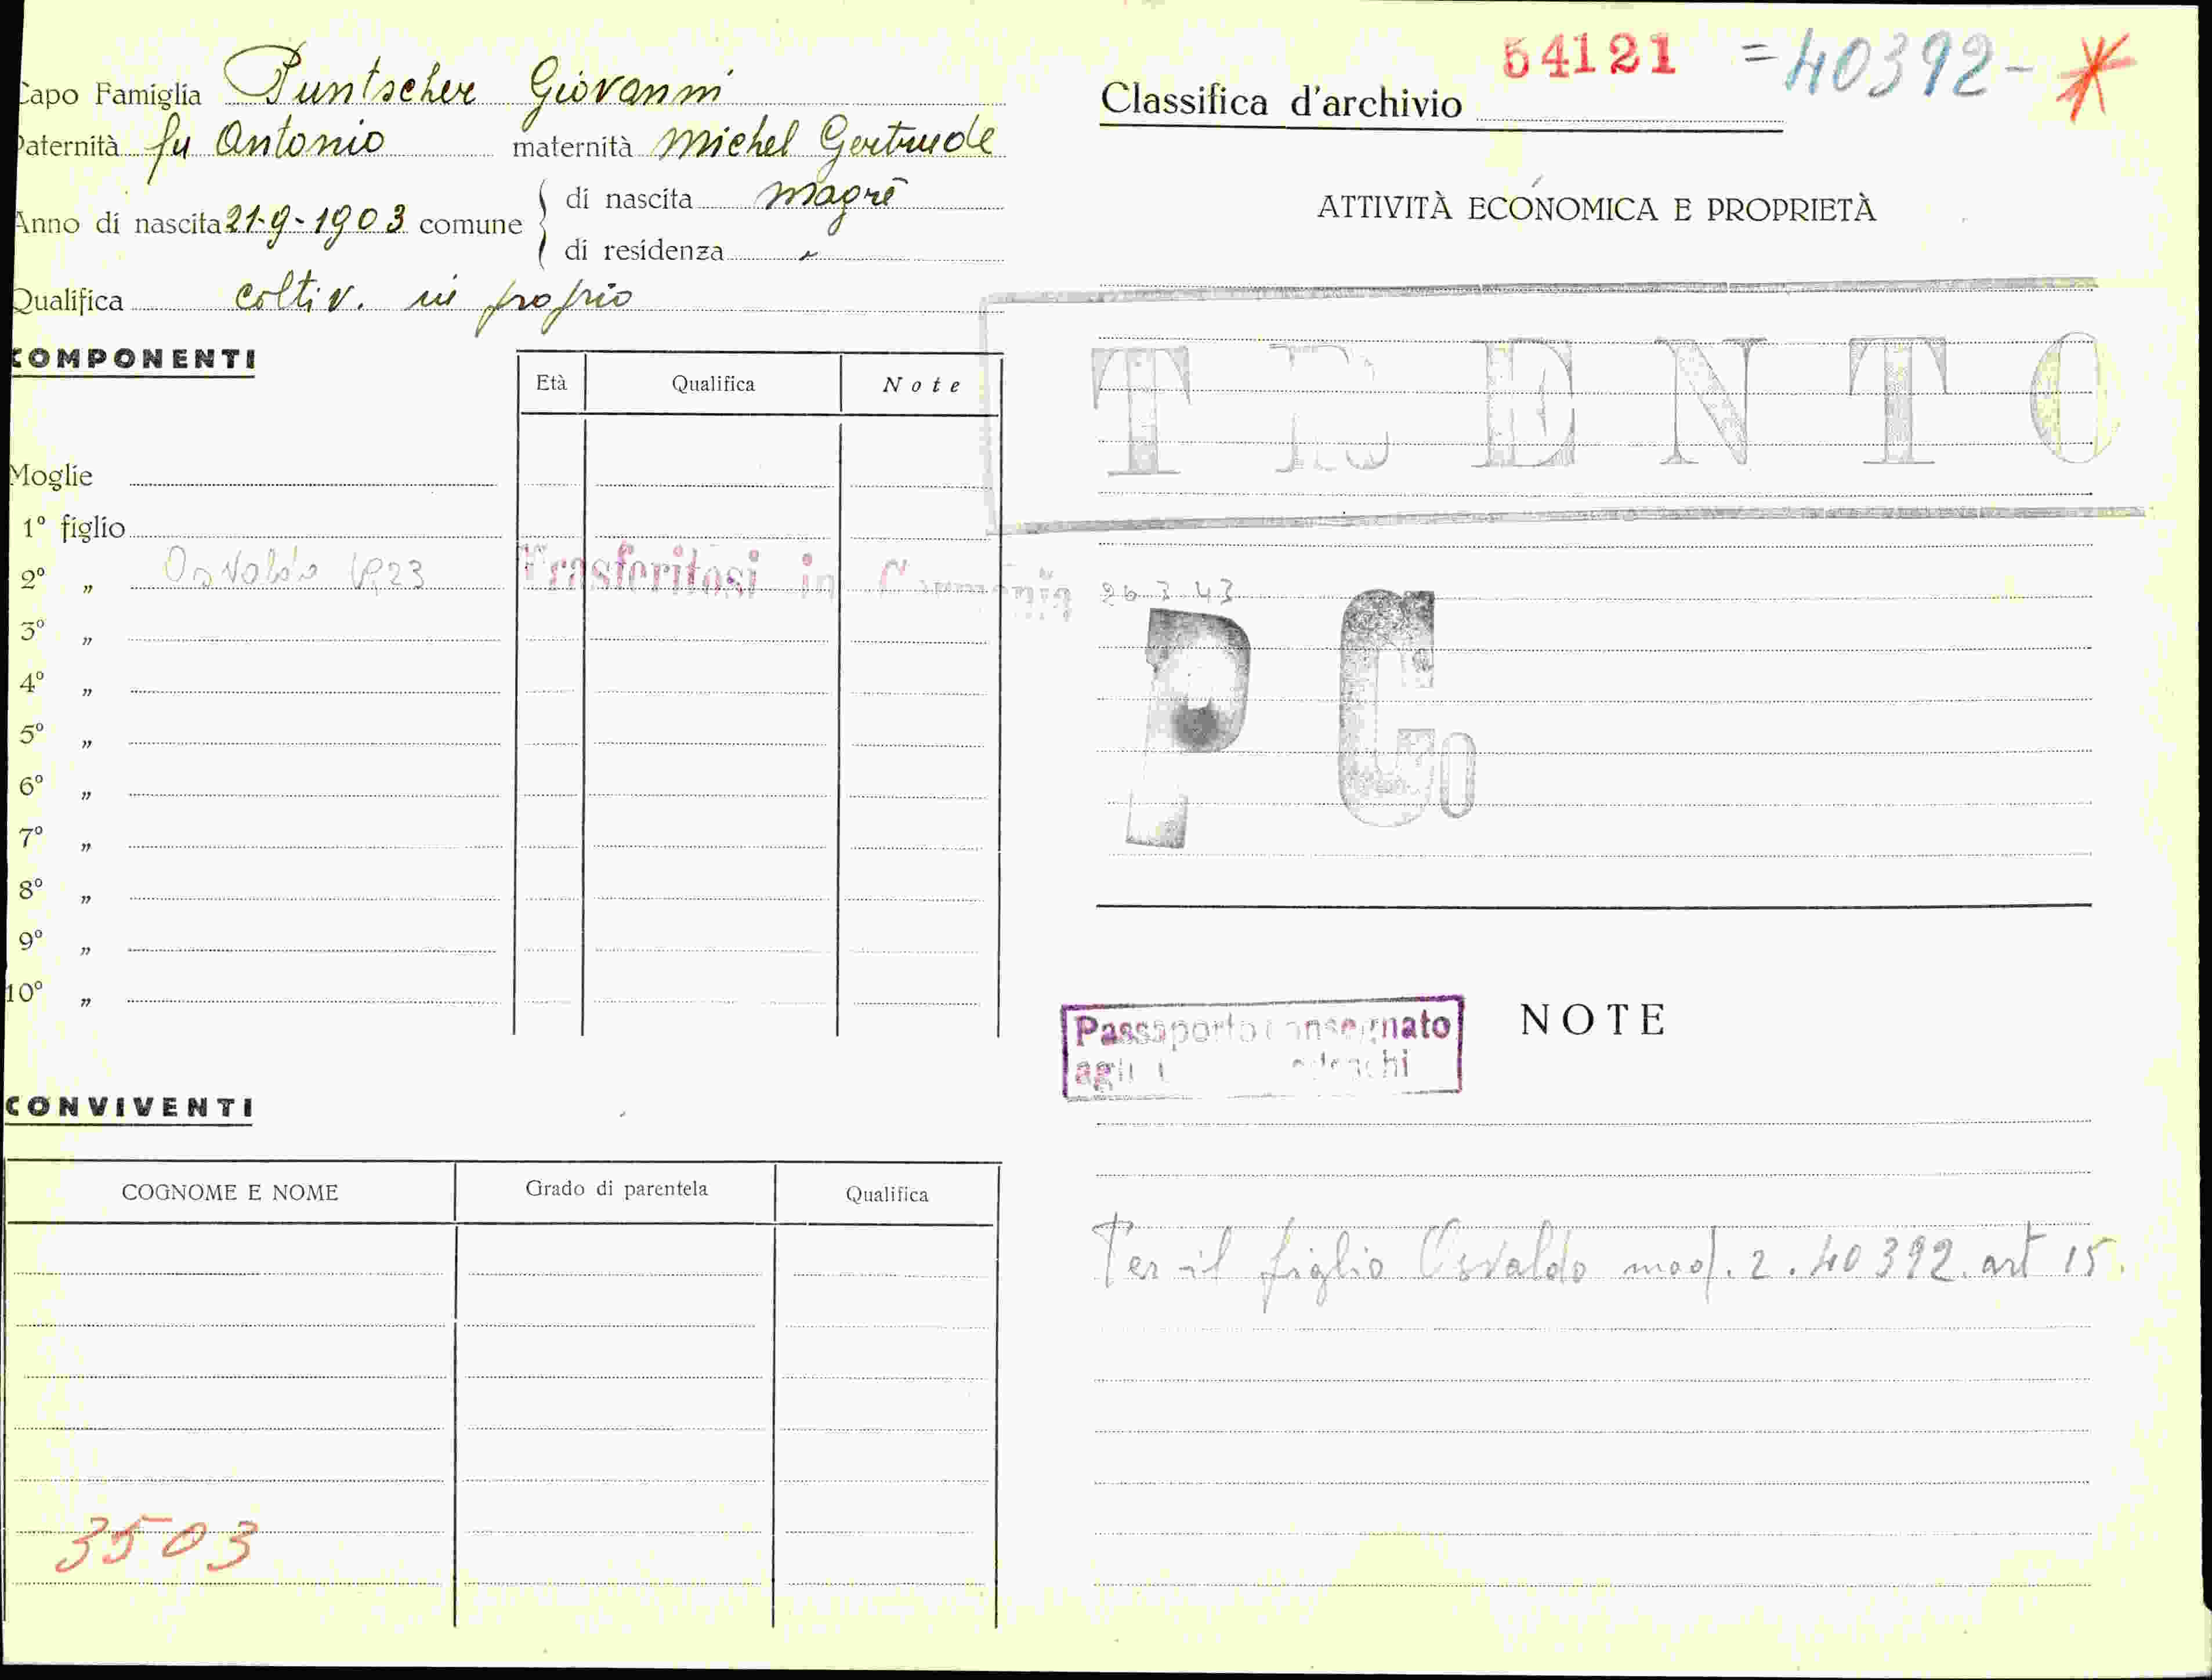 Capo Famiglia Puntscher Giovanni
Paternità fu Antonio maternità Michel Gertrude
Anno di nascita 21-9-1903 comune di nascita Magrè
di residenza "
Qualifica coltiv. in proprio
COMPONENTI
Età Qualifica Note
Moglie
1º figlio
2º " Osvaldo 1923 Trasferitosi in Germania 26.3.43
3º "
4º "
5º "
6º "
7º "
8º "
9º "
10º "
CONVIVENTI
COGNOME E NOME Grado di parentela Qualifica
3503
54121 = 40392 - *
Classifica d'archivio
ATTIVITÀ ECONOMICA E PROPRIETÀ
TRENTO
P Co
Passaporto consegnato
agli tedeschi
NOTE
Per il figlio Osvaldo mod. 2. 40392. art 15.